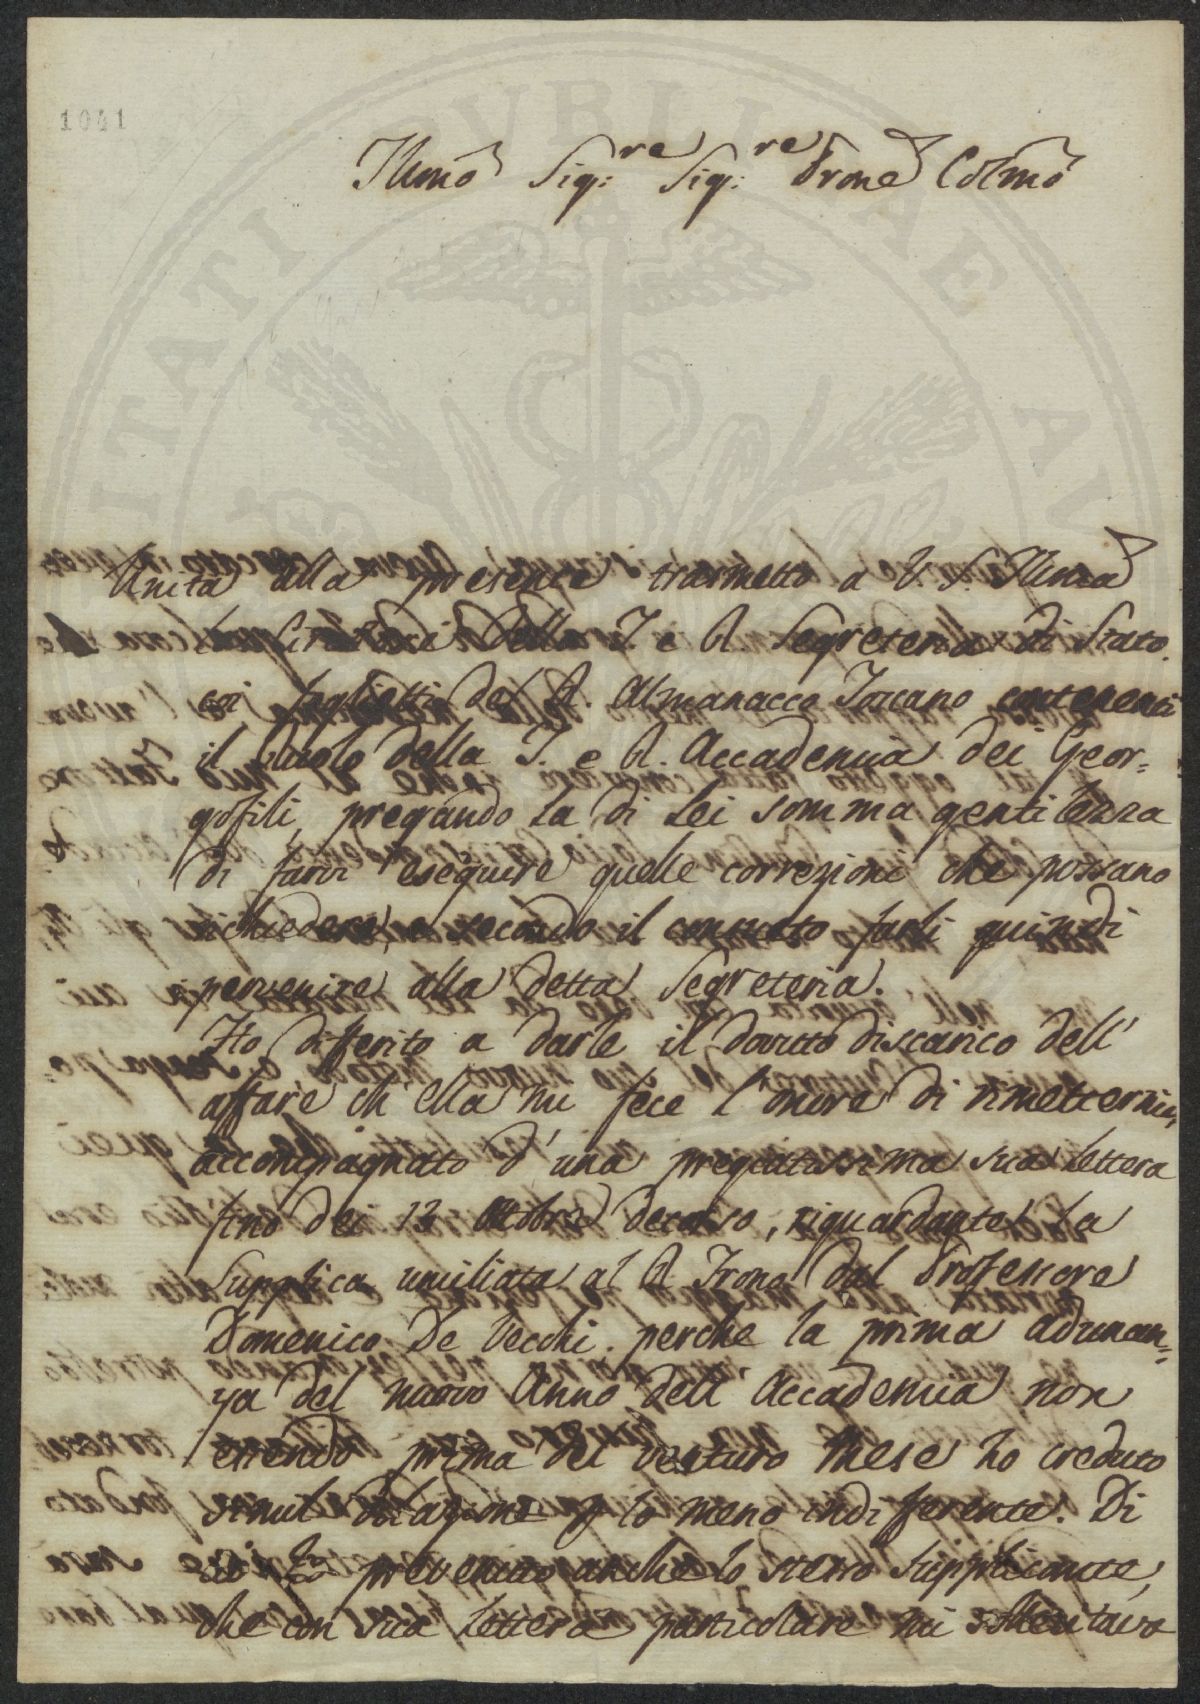 1041
Illmo Sig:re Sig:re Prone Colmo
Unita alla presente trasmetto a V. S. Illma
la Circolare della I. e R. Segreteria di Stato
coi foglietti del R. Almanacco Toscano contenenti
il Ruolo della I. e R. Accademia dei Geor-
gofili, pregando la di Lei somma gentilezza
di farvi eseguire quelle correzioni che possano
richiedere, e secondo il consueto farli quindi
pervenire alla detta Segreteria.
Ho differito a darle il dovuto discarico dell'
affare ch'Ella mi fece l'onore di rimettermi,
accompagnato d'una pregiatissima sua Lettera
fino dei 13 Ottobre decorso, riguardante la
Supplica umiliata al R. Trono dal Professore
Domenico De Vecchi. perche la prima adunan-
za del nuovo Anno dell'Accademia non
essendo prima del venturo Mese ho creduto
simil dilazione p lo meno indifferente. Di
ciò prevenuto anche lo stesso Supplicante,
che con sua Lettera particolare mi sollecitava